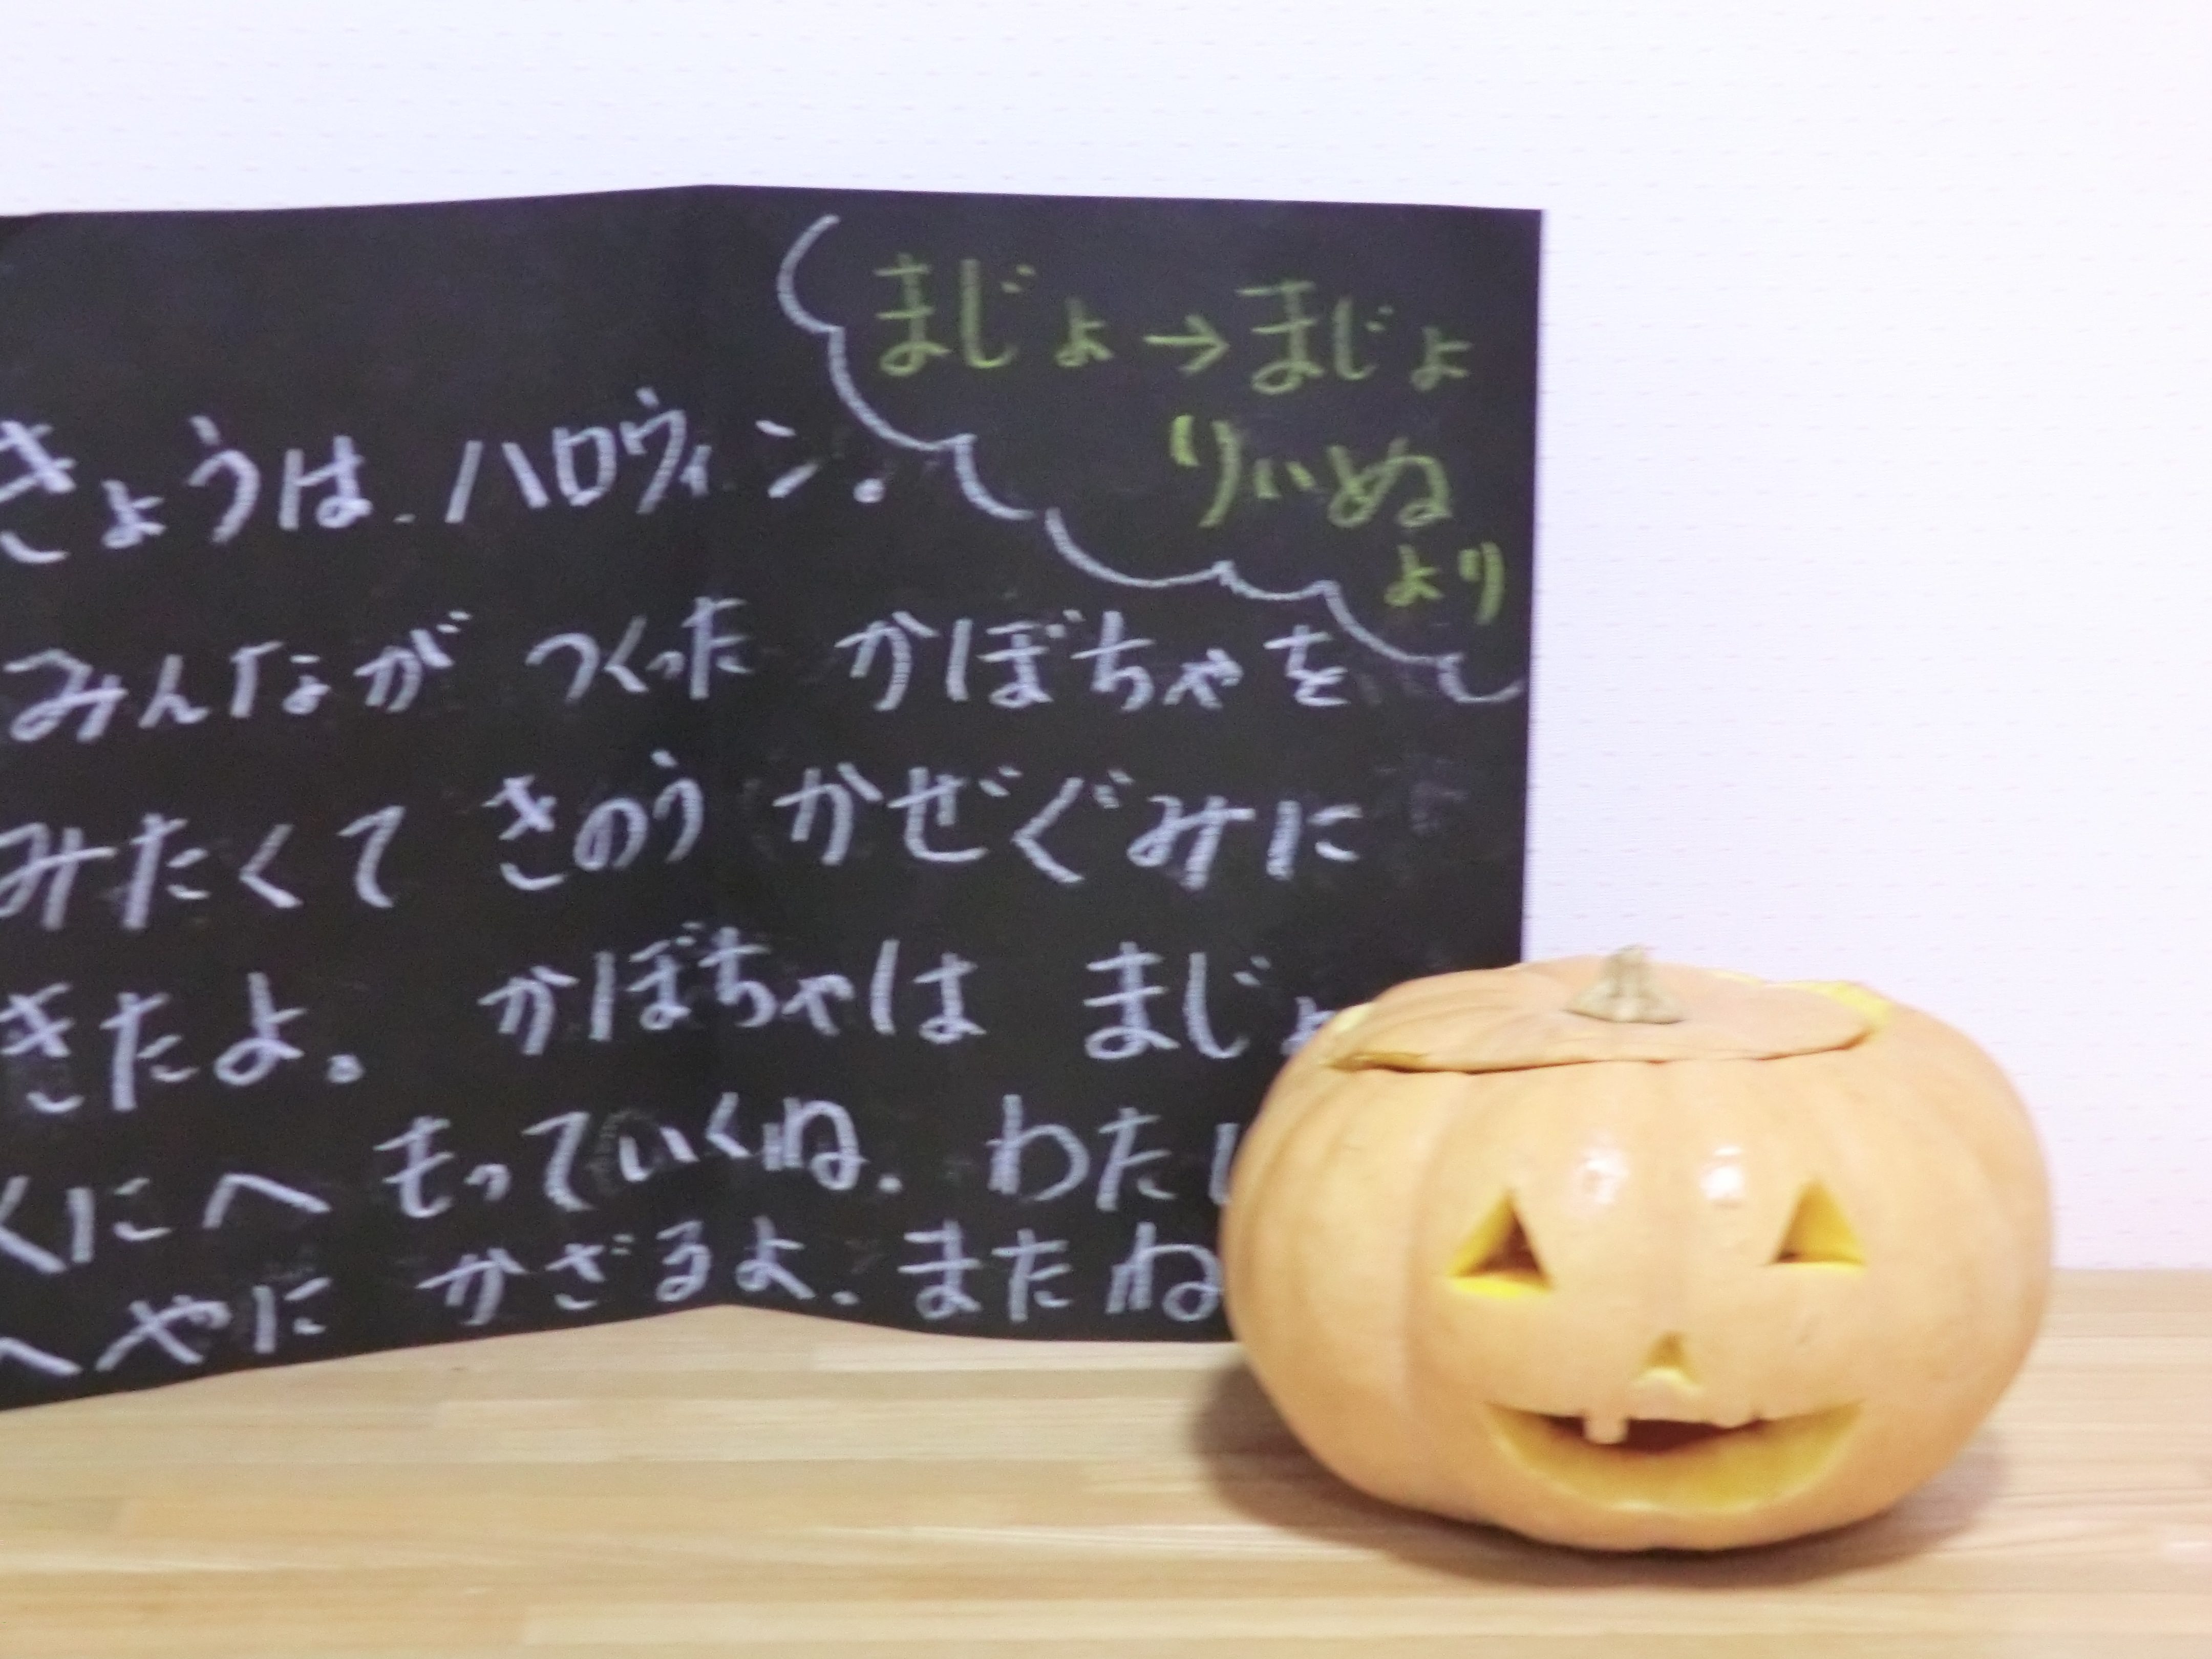 まじょ→まじょ
りぃぬ
より
きょうは ハロウィン。
みんなが つくった かぼちゃを
みたくて きのう かぜぐみに
きたよ。 かぼちゃは まじょ
くにへ もっていくね。 わたし
へやに かざるよ。またね